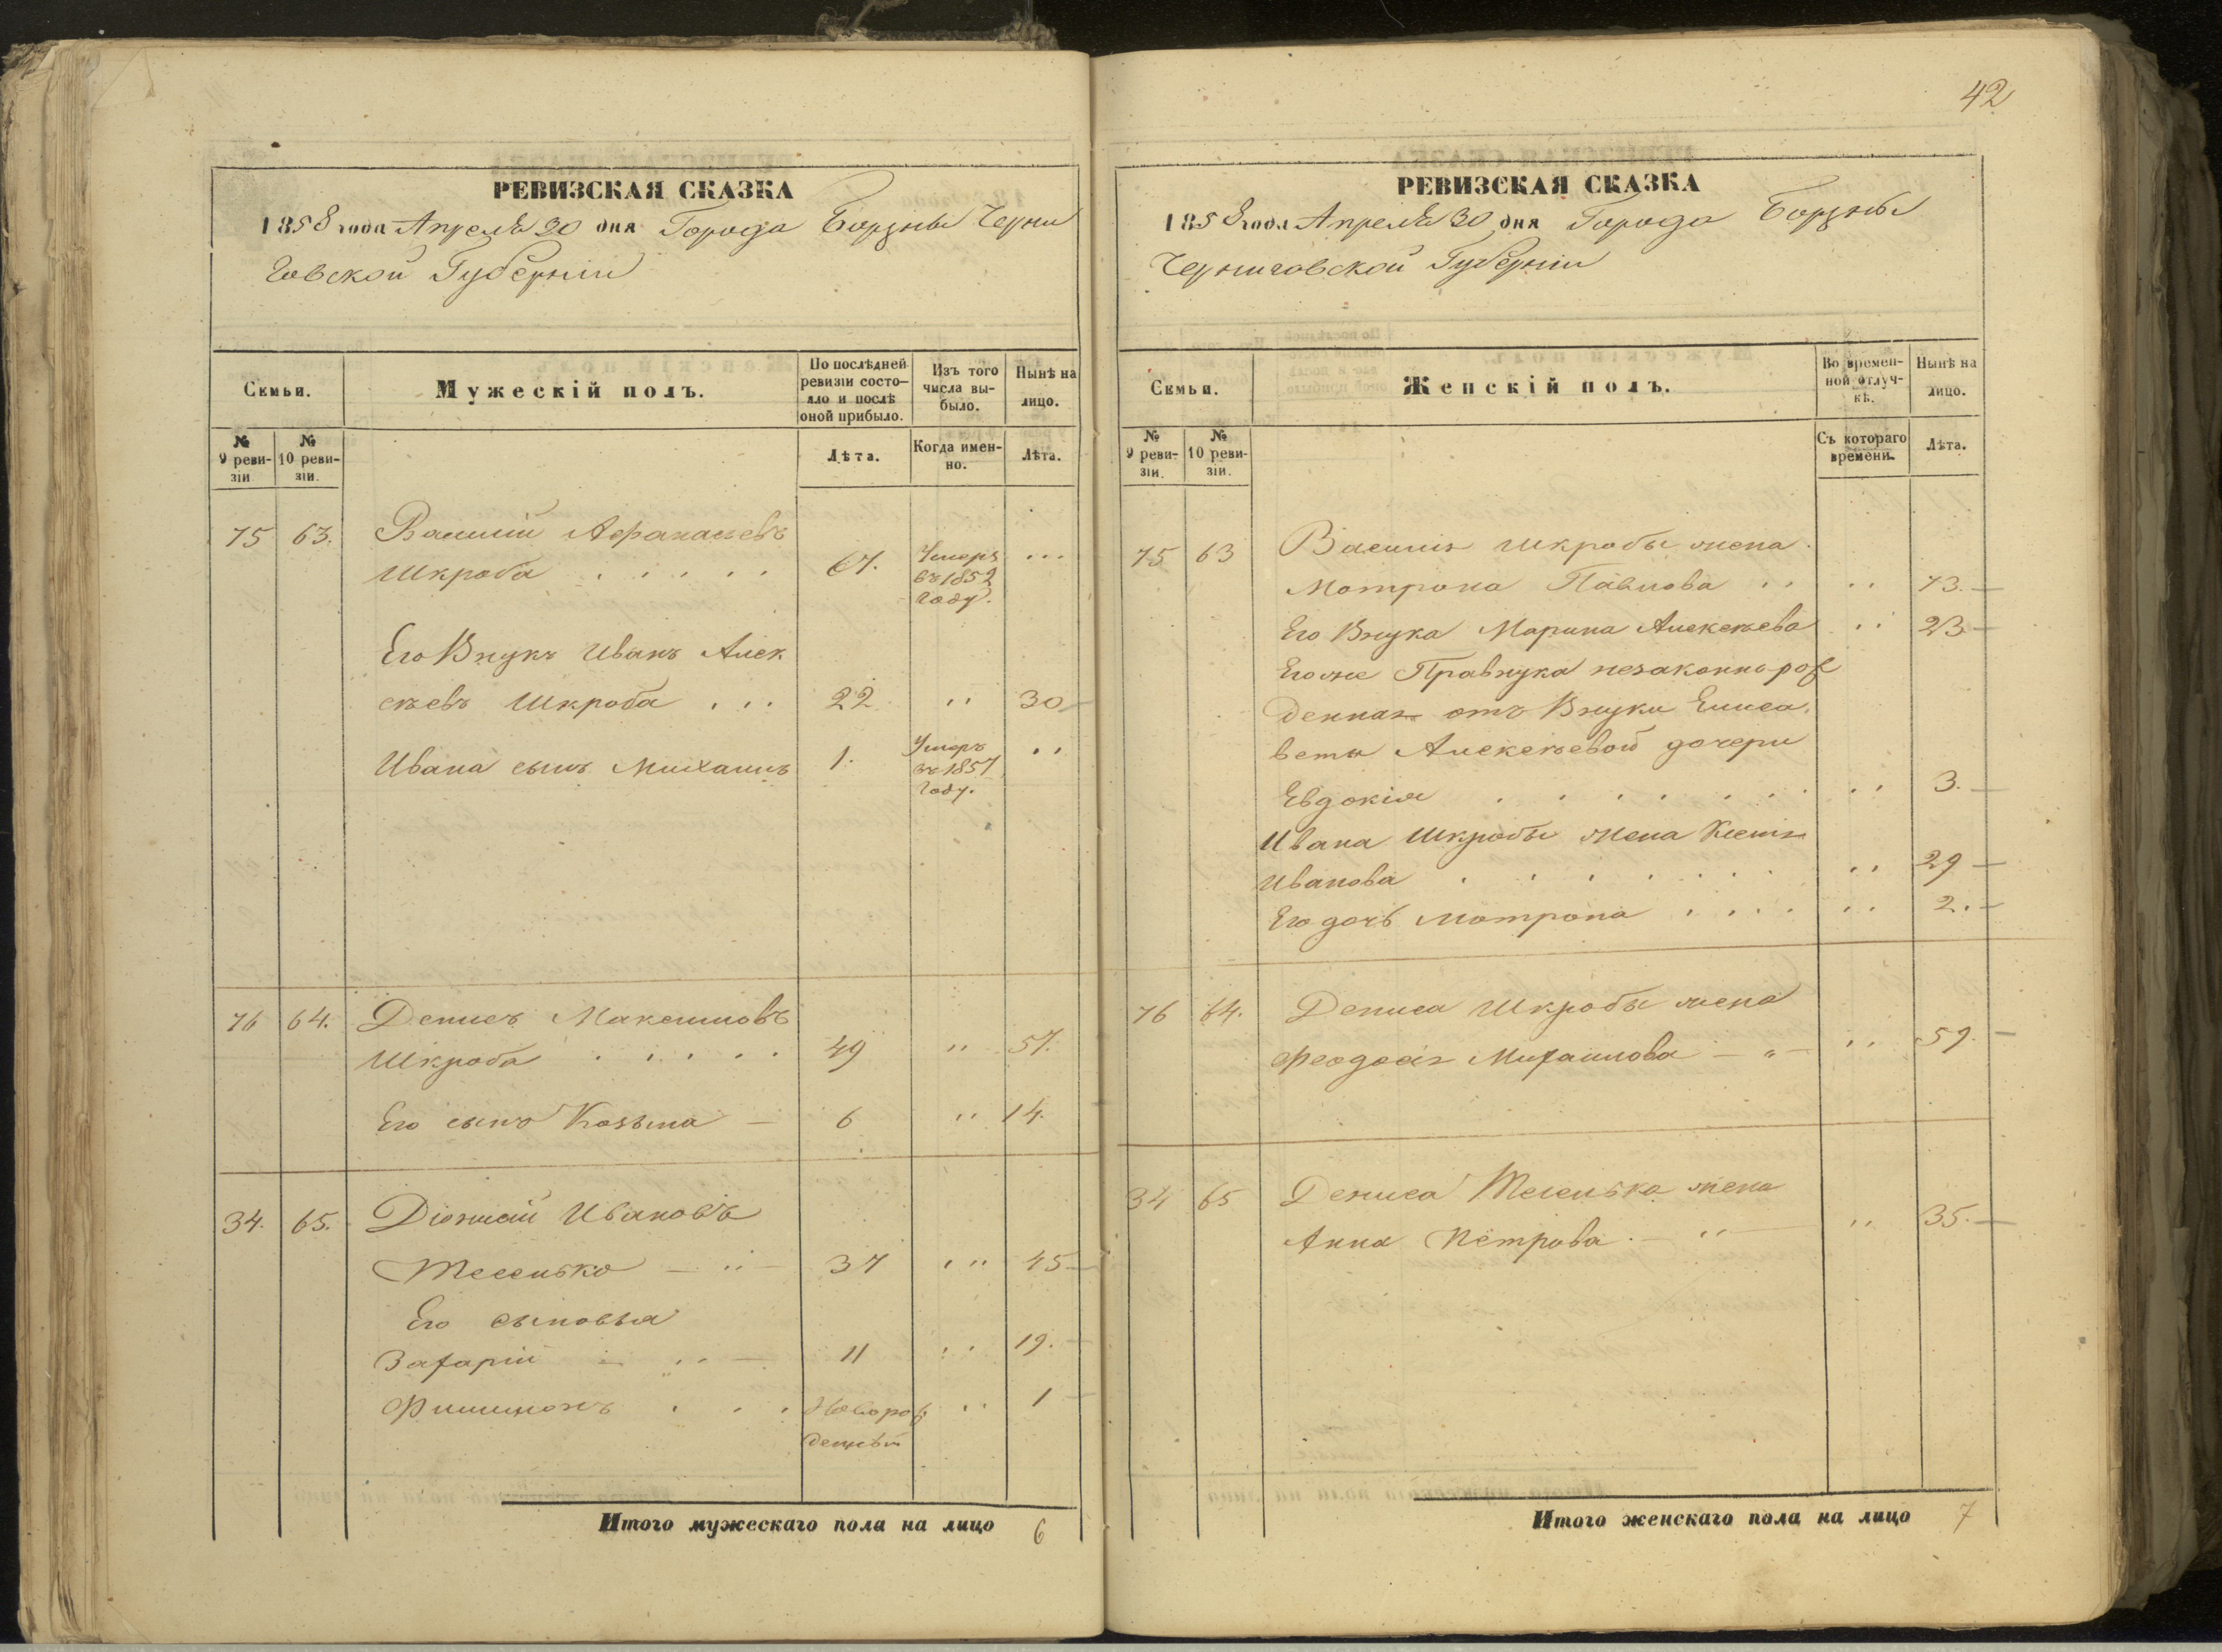 РЕВИЗСКАЯ СКАЗКА
1858 года Апреля 30 дня Города Борзны Черни
говской Губерніи
Семьи.
Мужескій полъ.
По послѣдней ревизіи состояло и послѣ оной прибыло.
Изъ того числа выбыло.
Нынѣ на лицо.
№ 9 ревизіи
№ 10 ревизіи.
Лѣта.
Когда именно.
Лѣта.
75 63. Василій Афанасьевъ
Шкроба . . . . . 67. Умеръ въ 1852 году. ...
Его Внукъ Иванъ Алек
сѣевъ Шкроба . . . 22 " 30
Ивана сынъ Михаилъ 1. Умеръ въ 1857 году. "
76 64. Денисъ Максимовъ
Шкроба . . . . . 49 " 57.
Его сынъ Козьма — 6 " 14.
34. 65. Діонисій Ивановъ
37 " 45
Его сыновья
Захарій — " — 11 " 19.
Филимонъ . . . Новорож " 1
денный
Итого мужескаго пола на лицо 6
42
РЕВИЗСКАЯ СКАЗКА
1858 года Апреля 30 дня Города Борзны
Черниговской Губерніи
Семьи.
Женскій полъ.
Во временной отлучкѣ.
Нынѣ на лицо.
№ 9 ревизіи.
№ 10 ревизіи.
Съ котораго времени.
Лѣта.
75 63 Василія Шкробы жена
Матрона Павлова . . " 73. —
Его Внука Марина Алексѣева " 23 —
Егоже Правнука незаконнорож
денная отъ Внуки Елиса
веты Алексѣевой дочери
Евдокія . . . . . . . " 3. —
Ивана Шкробы жена Ксенія
Иванова . . . . . . . " 29 —
Его дочь Матрона . . . . " 2. —
76 64. Дениса Шкробы жена
Феодосія Михайлова — " — " 59. —
34 65 Дениса жена
Анна Петрова. — " — " 35. —
Итого женскаго пола на лицо 7